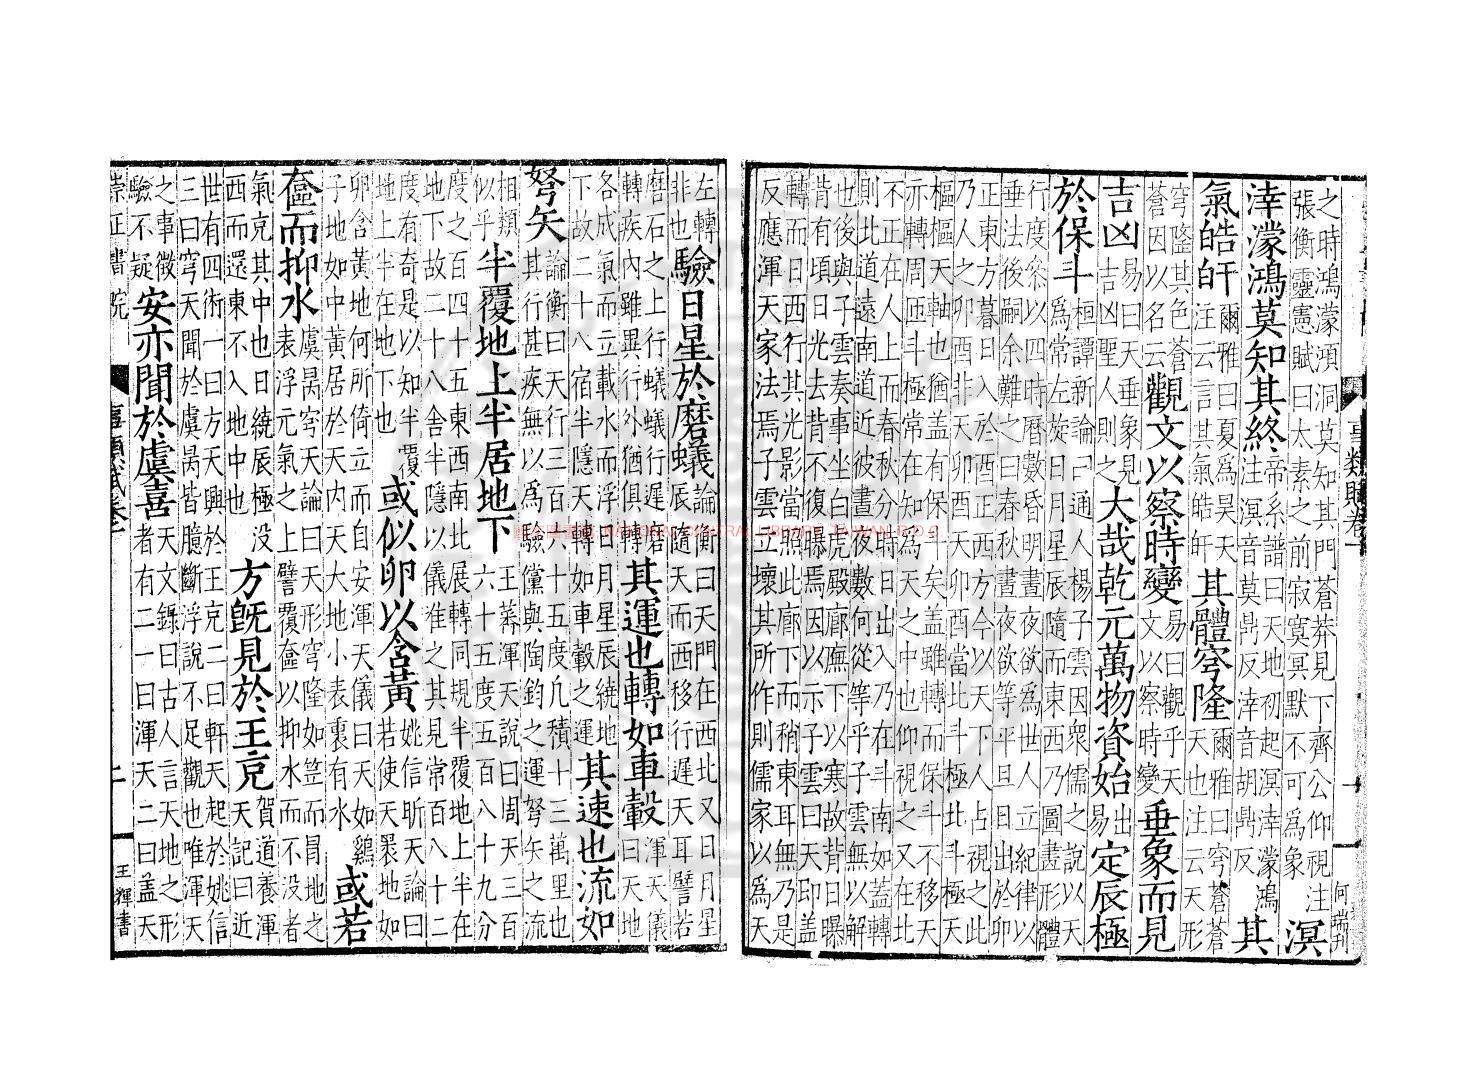 之時鴻濛澒洞莫知其門蒼莽見下齊公仰視注
張衡靈憲賦曰太素之前寂寞冥默不可為象
溟
涬濛鴻莫知其終
注帝系譜曰天地初起溟涬濛鴻
溟音莫鼎反涬音胡鼎反
其
氣皓皓
爾雅曰夏為昊天
注云言其氣皓旰
其體穹隆
爾雅曰穹蒼蒼
天也注云天形
穹隆其色蒼
蒼因以名云
觀文以察時變
易曰觀乎天
文以察時變
垂象而見
吉凶
易曰天垂象見
吉凶聖人則之
大哉乾元萬物資始
出
易
定辰極
於保斗
桓譚新論曰通人楊子雲因眾儒之說以天
為常左旋日月星辰隨而東西乃圖畫形體
行度參以四時曆數昏明晝夜欲為世人立紀律以
垂法後嗣余難之曰春秋晝夜欲等平旦日出於卯
正東方暮日入於酉正西方今以天下人占視之此
乃人之卯酉非天卯酉天卯酉當北斗極北斗極天
樞樞天軸也猶蓋有保斗矣蓋雖轉而保斗不移天
亦轉周匝斗極常在知為天之中也仰視之又在北
不正在人上而春秋分時日出入乃在斗南如蓋轉
則北道遠南道近彼晝夜數何從等乎子雲無以解
也後與子雲奏事坐白虎殿廊廡下以寒故背日曝
背有頃日光去背不復曝焉因以示子雲曰天即蓋
轉而日西行其光影當照此廊下而稍東耳無乃是
反應渾天家法焉子雲立壞其所作則儒家以為天
左轉
非也
驗日星於磨蟻
論衡曰天門在西北又日月星
辰隨天而西移行遲天耳譬若
磨石之上行蟻蟻行遲磨
轉疾內雖異行外猶俱轉
其運也轉如車轂
渾天儀
曰天地
各成氣而立載水而浮日月星辰繞地
下故二十八宿半隱天轉如車轂之運
其速也流如
弩矢
論衡曰天行三百六十五度凡積十三萬里也
其行甚疾無以為驗儻與陶鈞之運弩矢之流
相類
似乎
半覆地上半居地下
王蕃渾天說曰周天三百
六十五度五百八十九分
度之百四十五東西南北展轉同規半覆地上半在
地下故二十八舍半隱以儀准之其見常百八十二
度有奇是以知半覆
地上半在地下也
或似卵以含黃
姚信昕天論曰
若使天褁地如
卵含黃地何所倚立而自安渾天儀曰天如雞
子地如中黃居於天內天大地小表裏有水
或若
奩而抑水
虞昺穹天論曰天形穹隆如笠而冒地之
表浮元氣之上譬覆奩以抑水而不沒者
氣充其中也日繞辰極沒
西而還東不入地中也
方旣見於王充
賀道養渾
天記曰近
世有四術一曰方天興於王充二曰軒天起於姚信
三曰穹天聞於虞昺皆臆斷浮說不足觀也唯渾天
之事徵
驗不疑
安亦聞於虞喜
天文錄曰古人言天地之形
者有二一曰渾天二曰蓋天
事類賦卷一
何瑞刊
崇正書院
王輝書
國家圖書館 NATIONAL CENTRAL LIBRARY, TAIWAN, R.O.C.